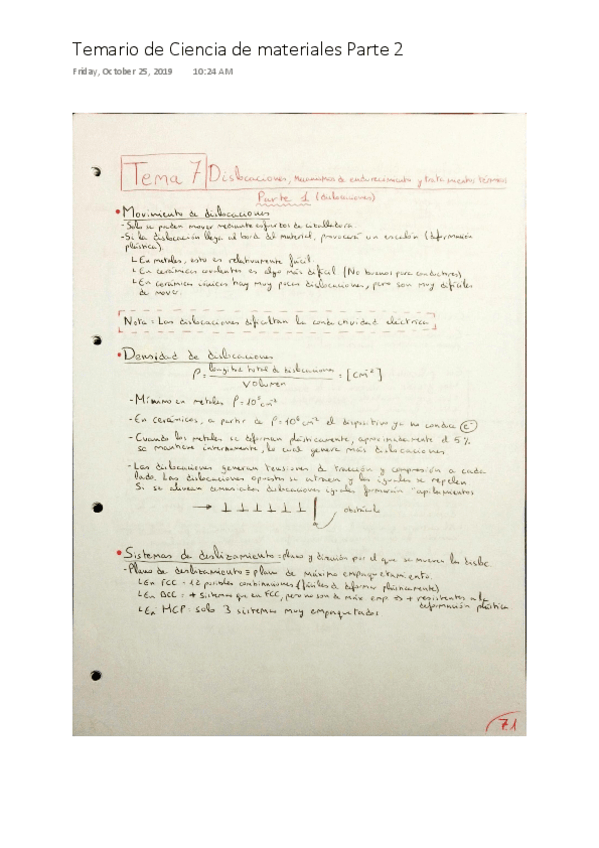 Temario de Ciencia de materiales Parte 2
Friday, October 25, 2019 10:24 AM
Tema 7 Dislocaciones, Mecanismos de endurecimiento y tratamientos térmicos
Parte 1 (dislocaciones)
• Movimiento de dislocaciones
- Solo se pueden mover mediante esfuerzos de cizalladura
- Si la dislocación llega al borde del material, provocará un escalón (deformación
plástica).
↳ En metales, esto es relativamente fácil
↳ En cerámicos covalentes es algo más difícil (No buenos para conductores)
↳ En cerámicos iónicos hay muy pocas dislocaciones, pero son muy difíciles
de mover.
Nota: Las dislocaciones dificultan la conductividad eléctrica
• Densidad de dislocaciones
ρ = longitud total de dislocaciones = [cm⁻²]
Volumen
- Mínimo en metales ρ=10⁶ cm⁻²
- En cerámicos, a partir de ρ=10⁶ cm⁻² el dispositivo ya no conduce e⁻
- Cuando los metales se deforman plásticamente, aproximadamente el 5%
se mantiene internamente, lo cual genera más dislocaciones
- Las dislocaciones generan tensiones de tracción y compresión a cada
lado. Las dislocaciones opuestas se atraen y las iguales se repelen
Si se alinean demasiadas dislocaciones iguales formarán "apilamientos
→ ⊥ ⊥ ⊥ ⊥ ⊥ ⊥ obstáculo
• Sistemas de deslizamiento = plano y dirección por el que se mueven las disloc.
- Plano de deslizamiento = plano de máximo empaquetamiento.
↳ En FCC = 12 posibles combinaciones (fáciles de deformar plásticamente)
↳ En BCC = + sistemas que en FCC, pero no son de máx emp ⇒ + resistentes a la
deformación plástica
↳ En HCP: solo 3 sistemas muy empaquetados
7.1